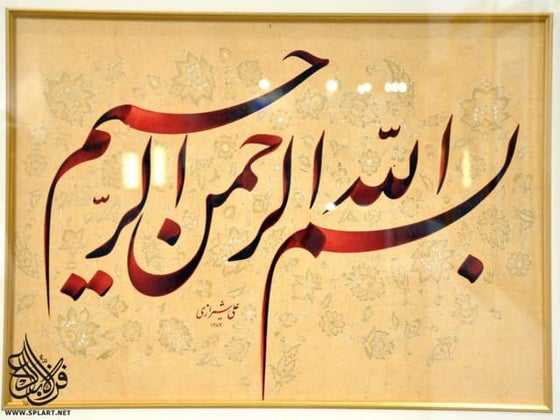 بسم الله الرحمن الرحیم
علی شیرازی
WWW.SPLART.NET